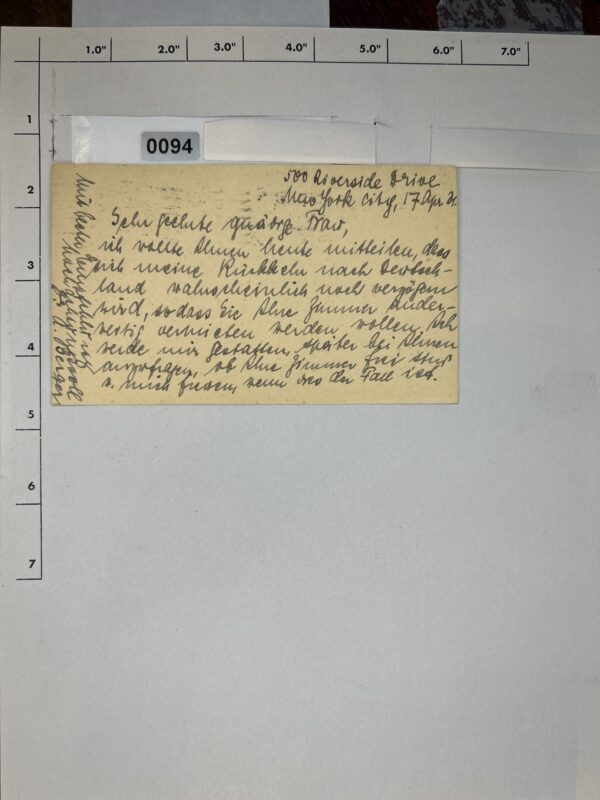 1.0" 2.0" 3.0" 4.0" 5.0" 6.0" 7.0"
1
2
3
4
5
6
7
0094
500 Riverside Drive
New York City, 17 Apr
Sehr geehrte gnädge Frau,
ich wollte Ihnen heute mitteilen, dass
sich meine Rückkehr nach Deutsch-
land wahrscheinlich noch verzögern
wird, so dass Sie Ihre Zimmer ander-
weitig vermieten werden wollen. Ich
werde mir gestatten, später bei Ihnen
anzufragen, ob Ihre Zimmer frei sind
u. mich freuen, wenn dies der Fall ist.
Mit besten Empfehlungen
hochachtungsvoll
Berger